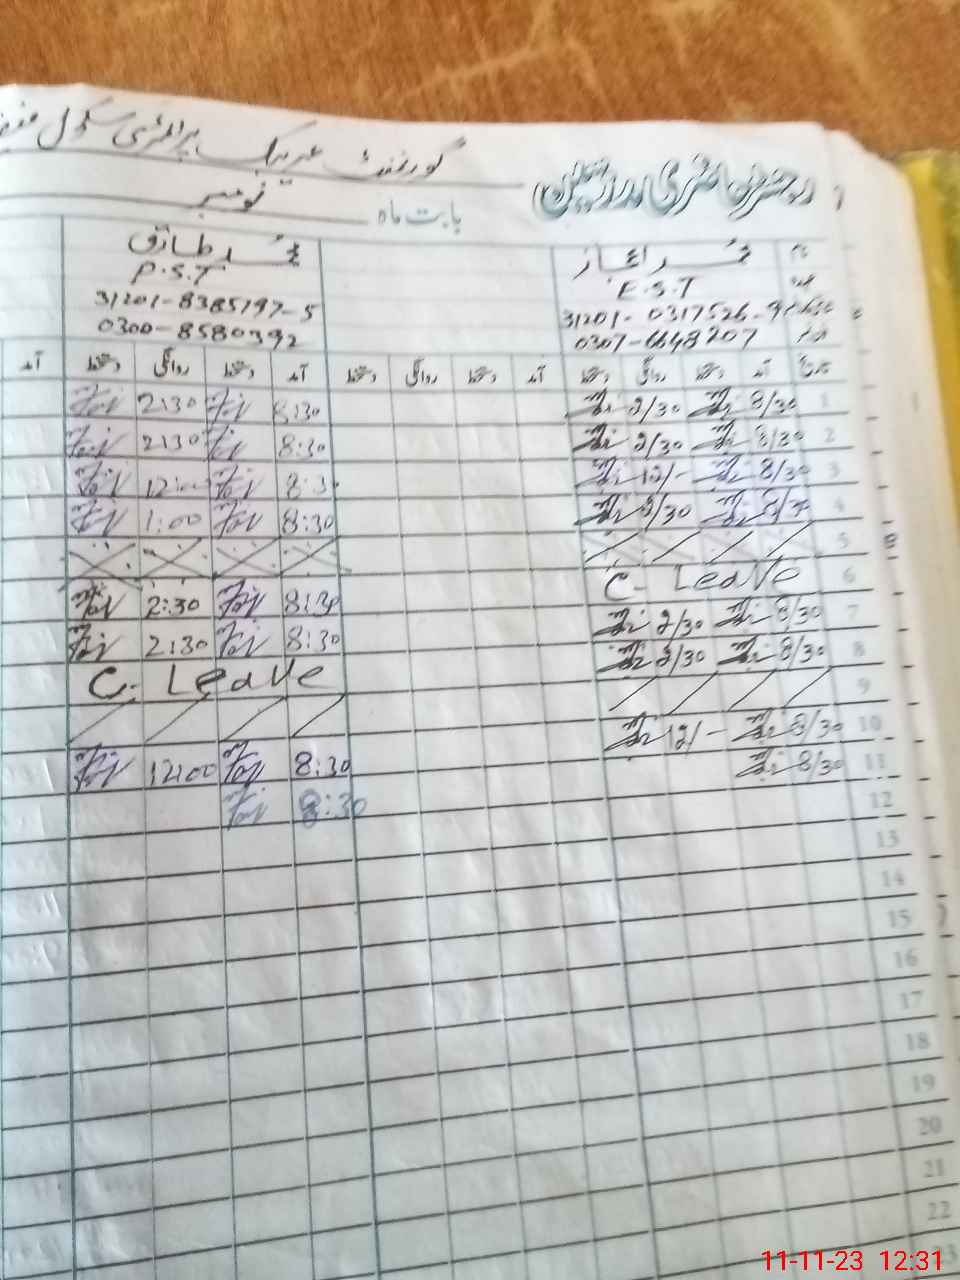 رجسٹر حاضری مدرسین گورنمنٹ پرائمری سکول
بابت ماہ نومبر
نام محمد اعجاز محمد طارق
عہدہ E.S.T P.S.T
31201-0317526-9 31201-8385197-5
0307-6648207 0300-8580392
تاریخ آمد دستخط روانگی دستخط آمد دستخط روانگی دستخط آمد دستخط روانگی دستخط آمد
1 8/30 2/30 8:30 2:30
2 8/30 2/30 8:30 2:30
3 8/30 12/- 8:3 12:00
4 2/30 8:30 1:00
5
6 C. Leave 8:30 2:30
7 8/30 2/30 8:30 2:30
8 8/30 2/30 C. Leave
9
10 8/30 12/- 8:30 12:00
11 8/30 8:30
12
13
14
15
16
17
18
19
20
21
22
23
11-11-23 12:31